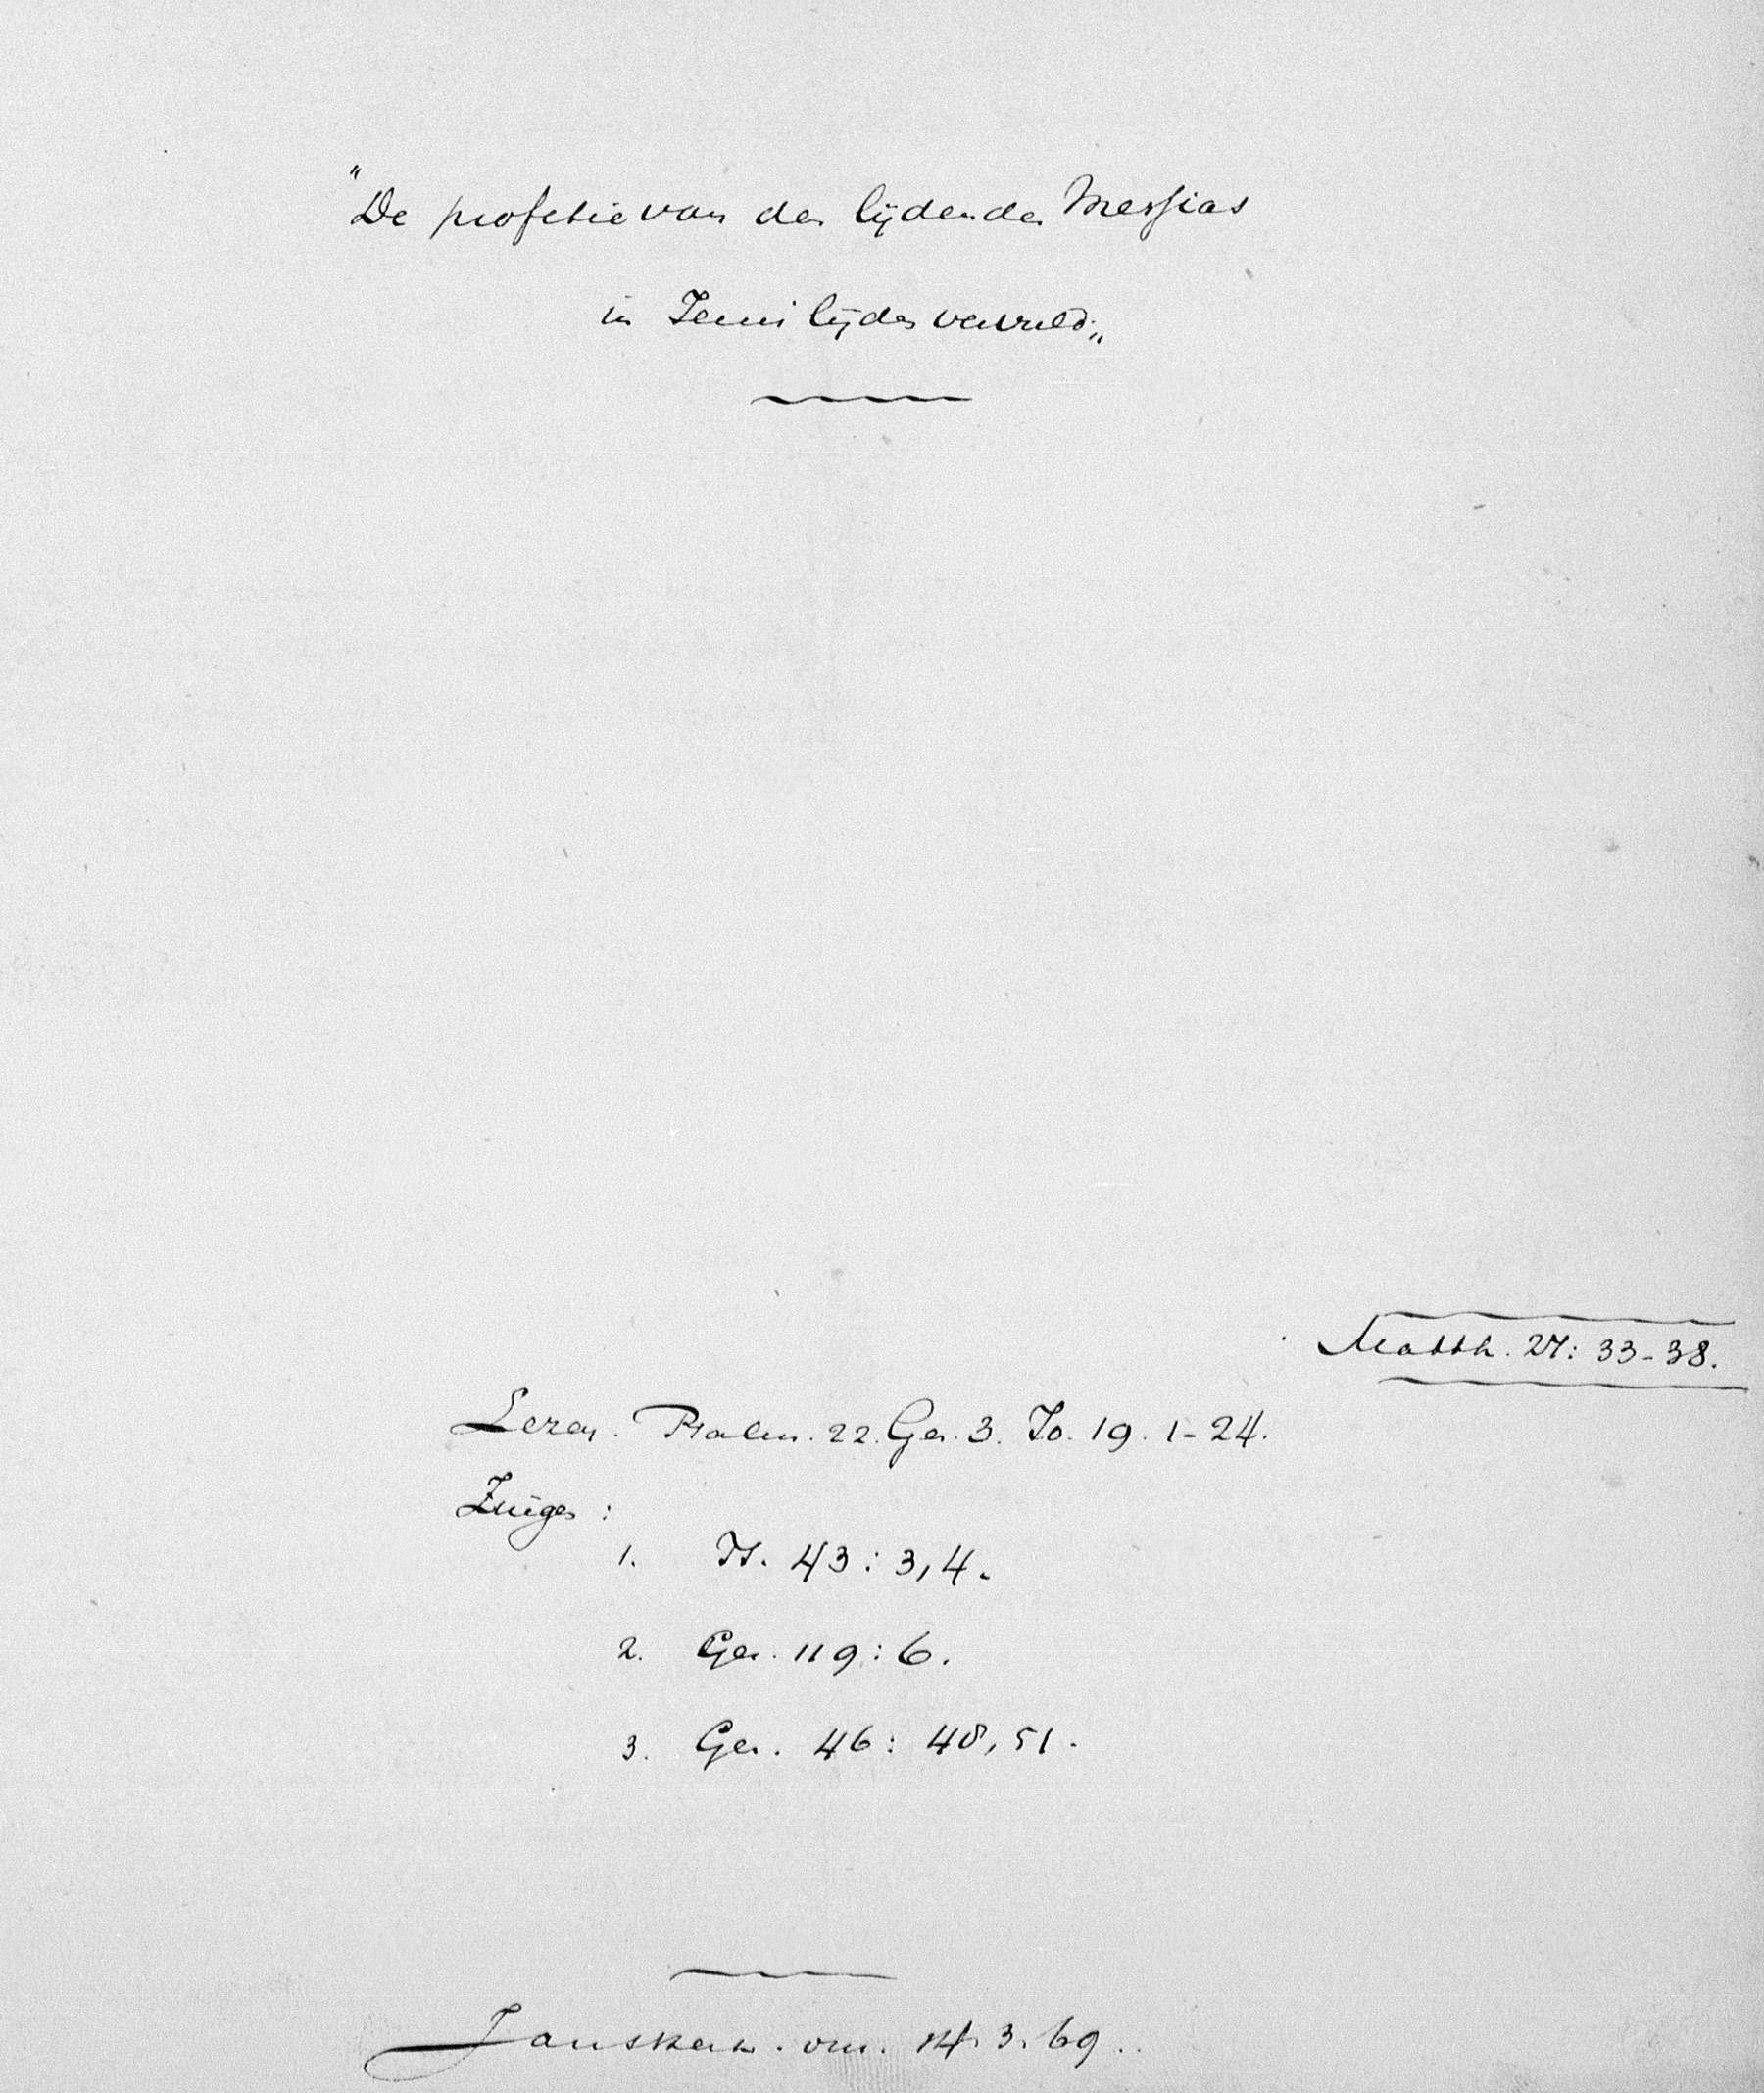 "De profetie van den lijdenden Messias
in Jezus lijden vervuld."
Matth. 27: 33-38.
Lezen. Psalm. 22. Gez. 3. Jo. 19. 1-24.
Zingen :
1. Ps. 43 : 3,4.
2. Gez. 119 : 6.
3. Gez. 46 : 48, 51.
Janskerk. vm. 14. 3. 69..